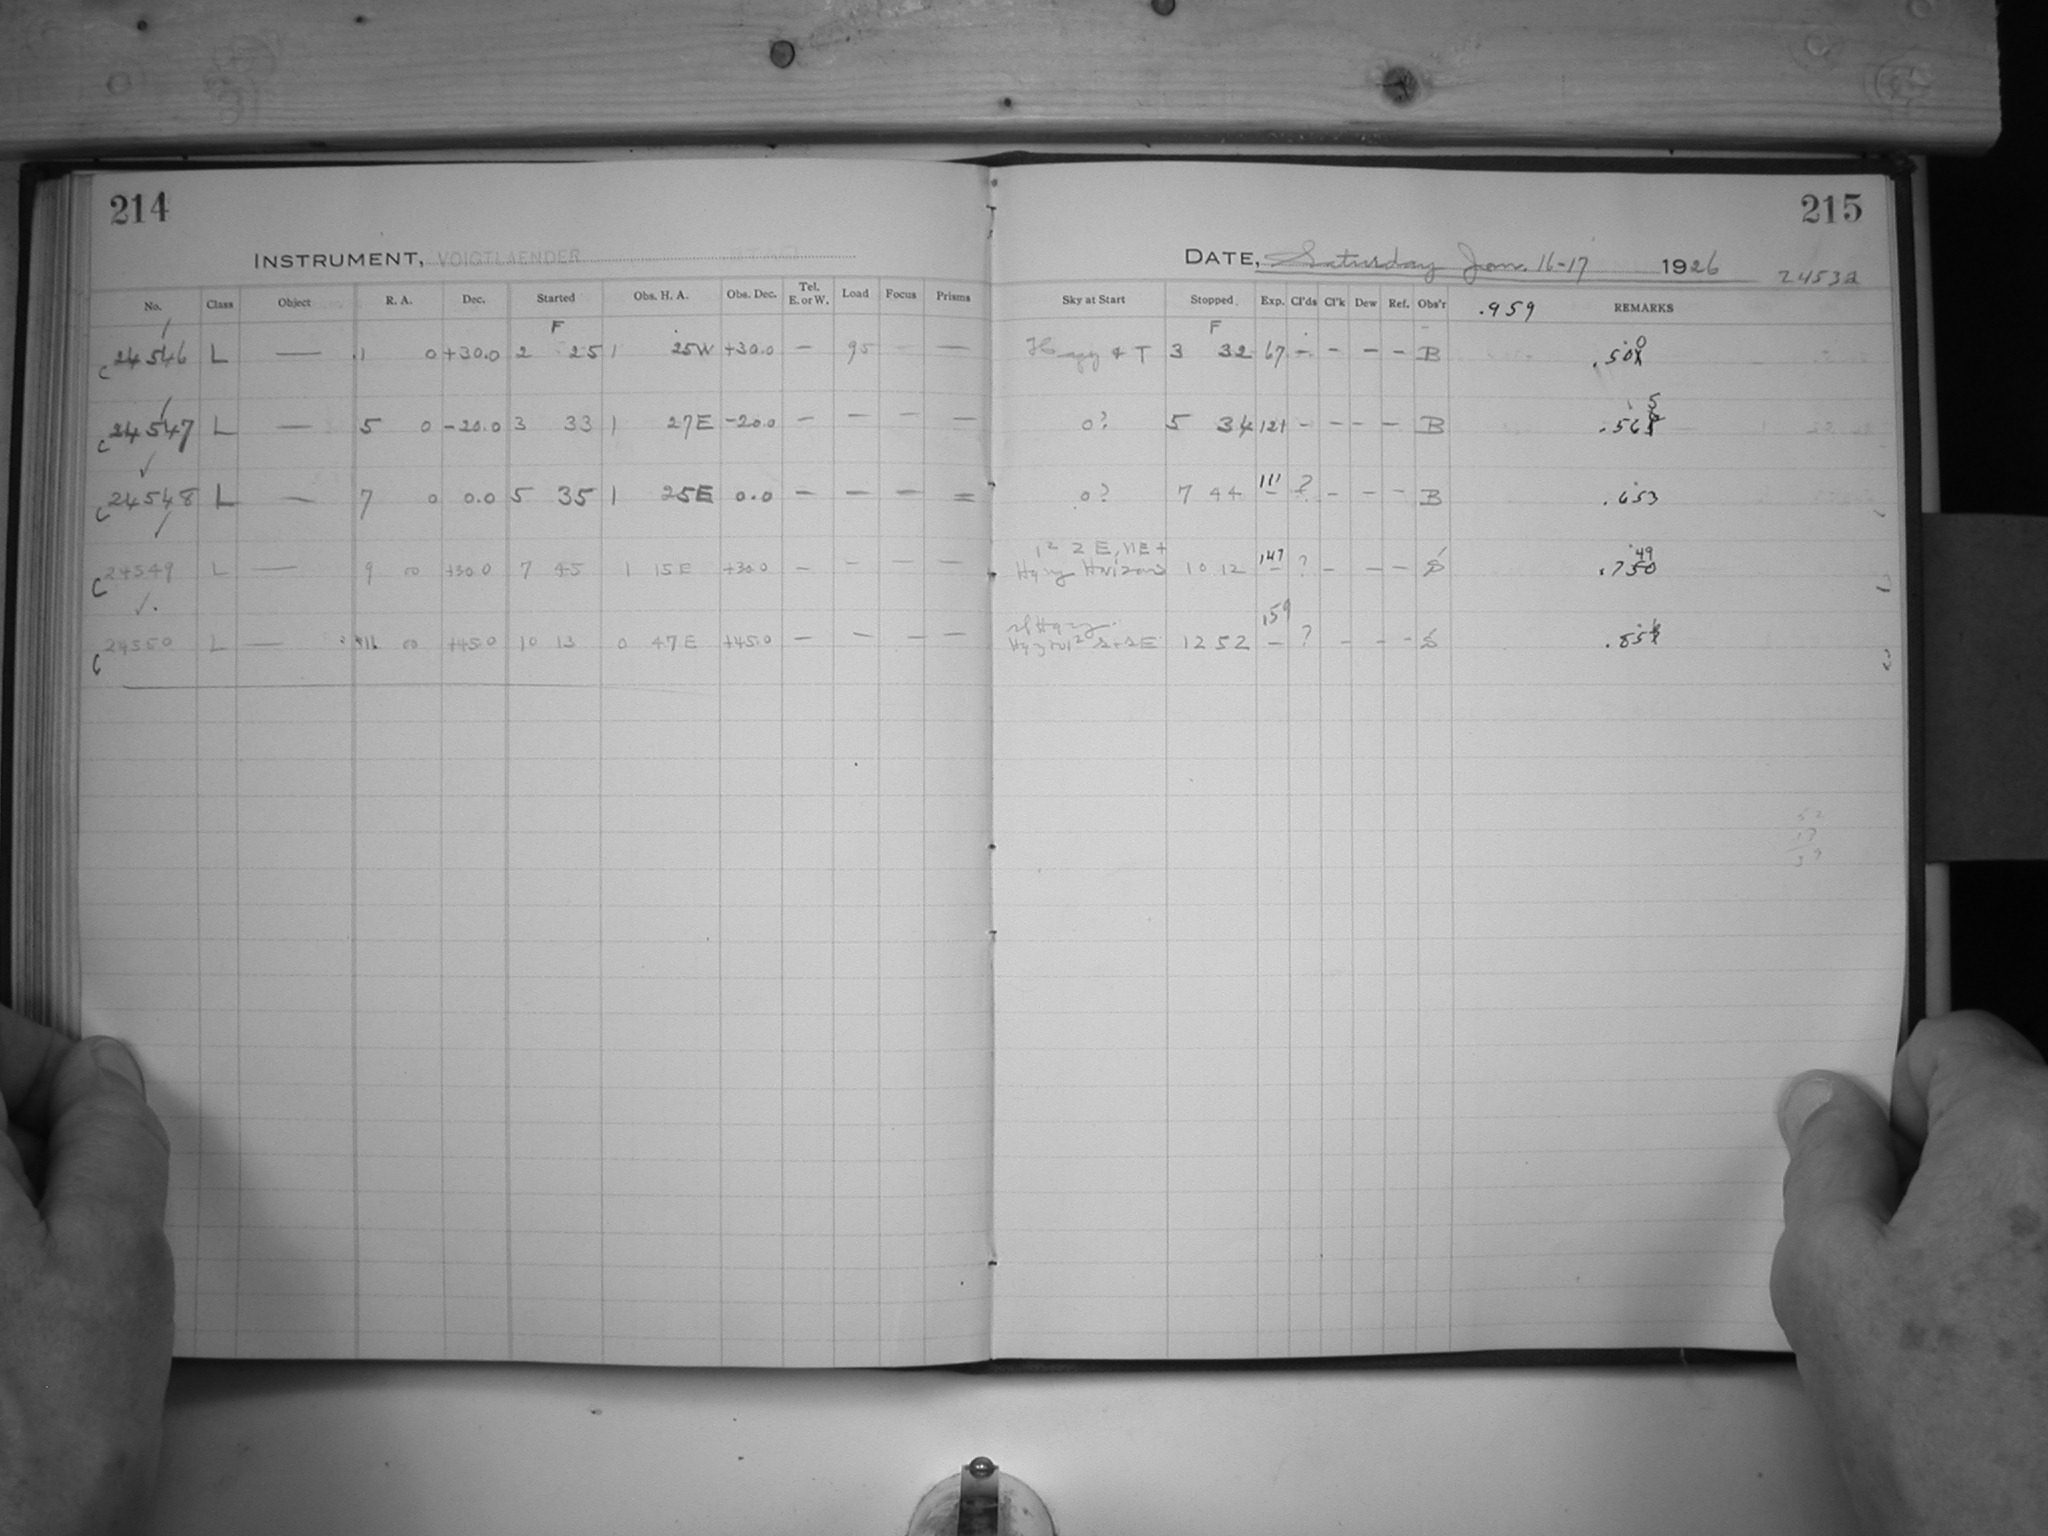 214
215
INSTRUMENT, VOIGTLAENDER
DATE, Saturday Jan. 16-17 1926 24532
No. Class Object R. A. Dec. Started Obs. H. A. Obs. Dec. Tel. E. or W. Load Focus Prisms Sky at Start Stopped Exp. Cl'ds Cl'k Dew Ref. Obs'r .959 REMARKS
F F
24546 L — 1 0 +30.0 2 25 1 25W +30.0 — 95 — — Hazy & T 3 32 67 - - - - B .500
c 24547 L — 5 0 -20.0 3 33 1 27E -20.0 — — — — 0? 5 34 121 - - - - B .565
c 24548 L — 7 0 0.0 5 35 1 25E 0.0 — — — = 0? 7 44 111 ? - - - B .653
1² 2 E, NE +
c 24549 L — 9 00 +30.0 7 45 1 15E +30.0 — — — — Hazy Horizons 10 12 147 ? - - - S .750 49
c 24550 L — 11 00 +45.0 10 13 0 47E +45.0 — — — — 12 52 159 ? - - - S
52
17
39